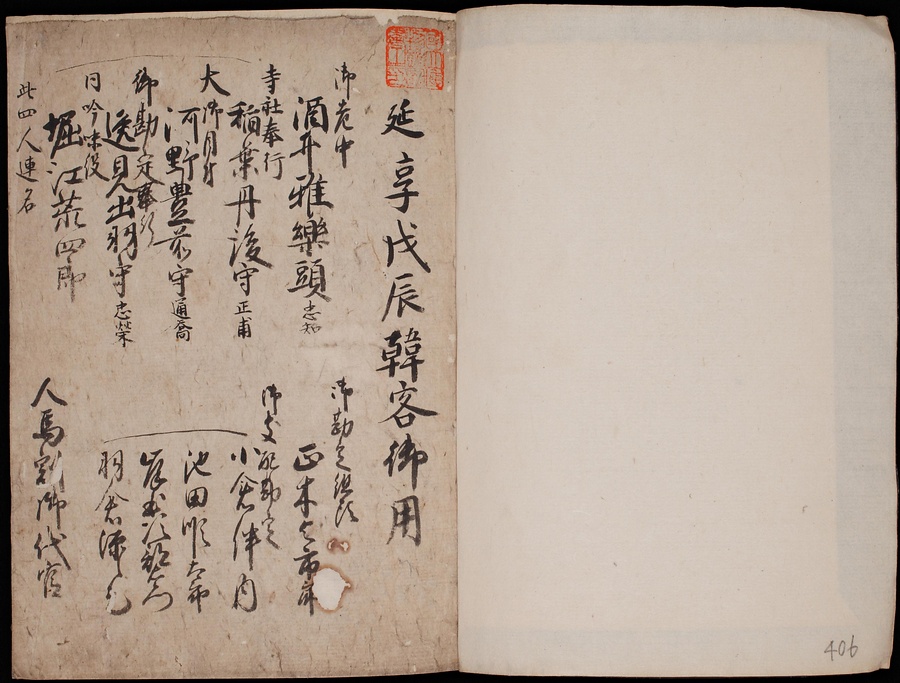 延享戊辰韓客御用
御老中
酒井雅樂頭忠知
寺社奉行
稲葉丹後守正甫
大御目付
河野豊前守通喬
御勘定奉行
逸見出羽守忠榮
同吟味役
堀江荒四郎
此四人連名
御勘定組頭
正木
御支配勘定
小倉伴内
池田
羽倉
人馬割御代官
406